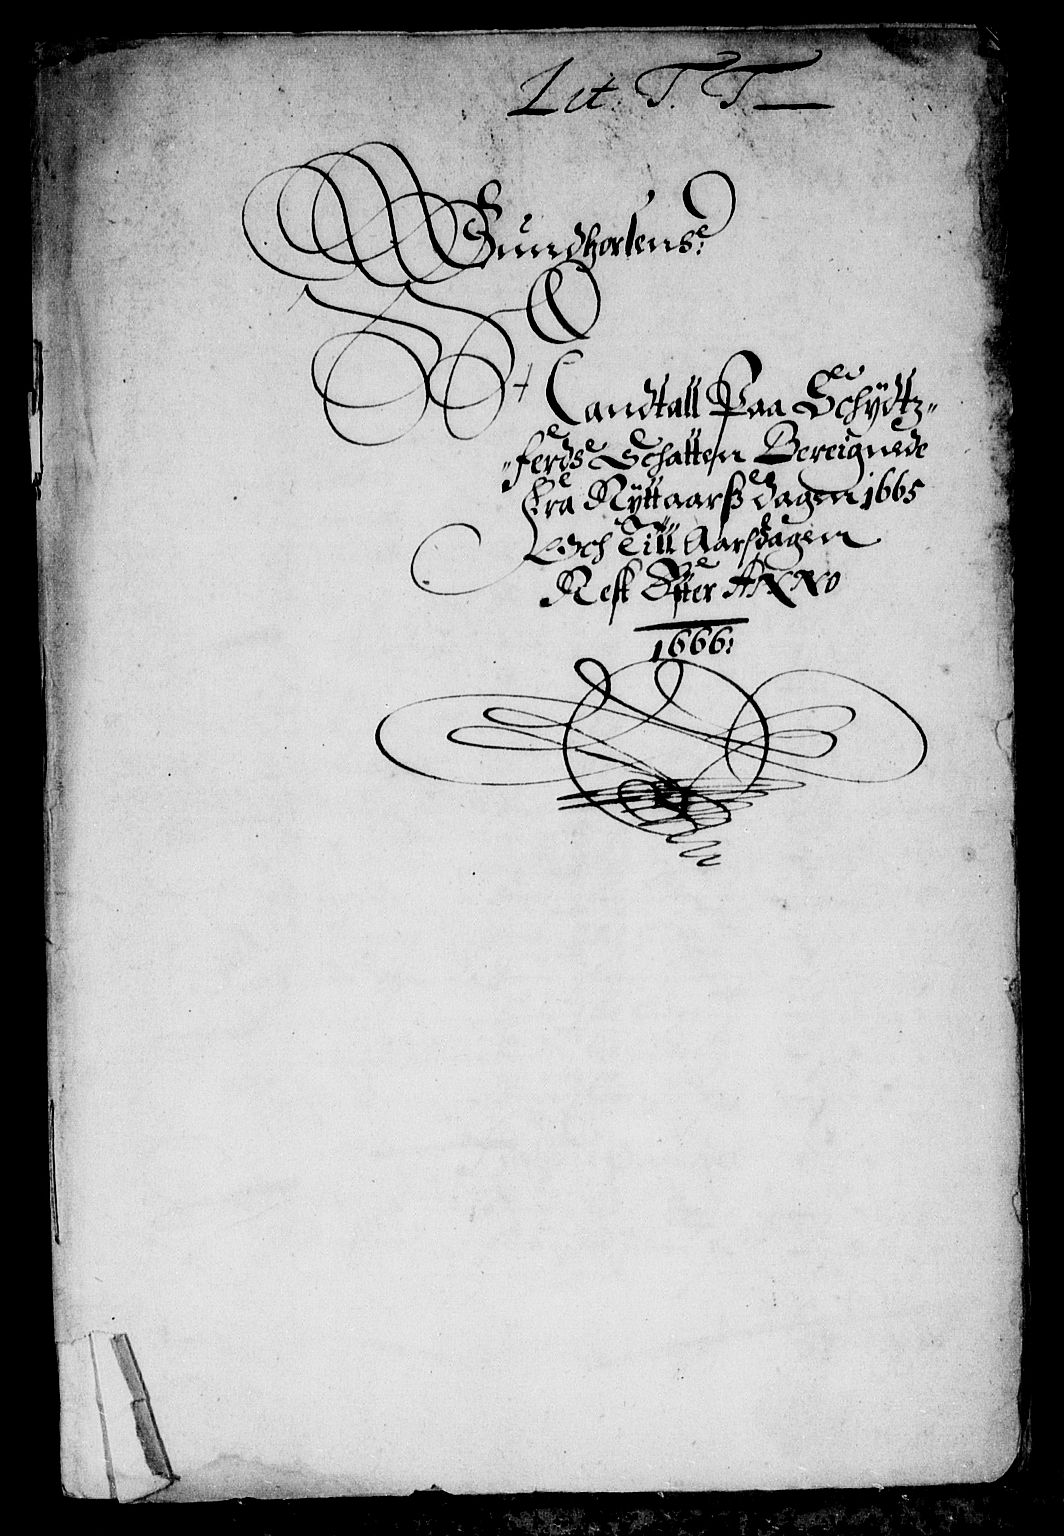 Lit. T. T
Sundhorlens:
Landtall Paa Schÿdtz-
-ferds Schatten Bereignede
fra Nÿttaarß dagen 1665
Och Till Aarsdagen
Nest Effter ANNO
1666: